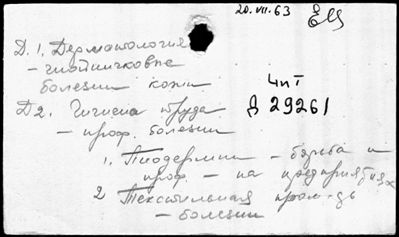 20.VII.63
Д. 1. Дерматология
- гнойничковые
болезни кожи
Чит
Д 29261
Д2. Гигиена труда
- проф. болезни
1. Пиодермии - борьба и
проф. - на предприятиях
2 Текстильная пром-ть
- болезни